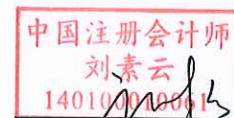 中国注册会计师
刘素云
140100010061